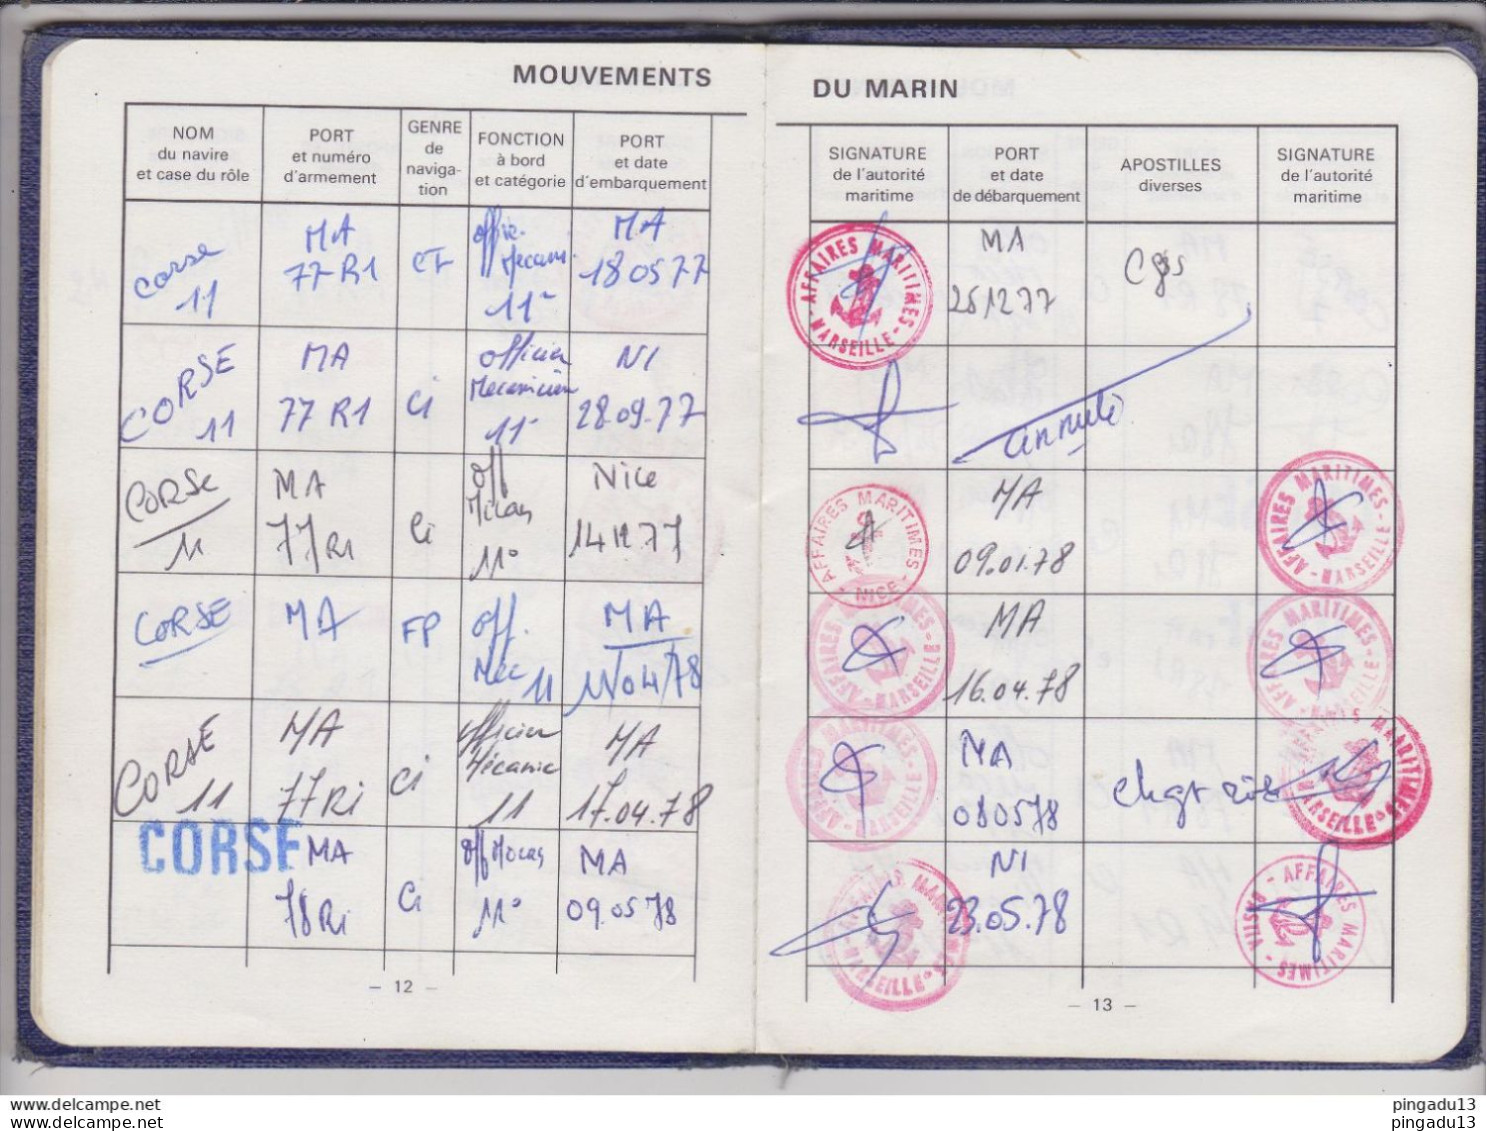 MOUVEMENTS
DU MARIN
NOM
du navire
et case du rôle
PORT
et numéro
d'armement
GENRE
de
naviga-
tion
FONCTION
à bord
et catégorie
PORT
et date
d'embarquement
SIGNATURE
de l'autorité
maritime
PORT
et date
de débarquement
APOSTILLES
diverses
SIGNATURE
de l'autorité
maritime
Corse
11
MA
77 R1
11
MA
18 05 77
AFFAIRES MARITIMES
MARSEILLE
MA
251277
CORSE
11
MA
77 R1
Ci
Officier
Mecanicien
11
NI
28.09.77
annulé
CORSE
11
MA
77 R1
Ci
Off
11°
Nice
14 12 77
AFFAIRES MARITIMES
NICE
MA
09.01.78
AFFAIRES MARITIMES
MARSEILLE
CORSE
MA
FP
Off.
Mec 11
MA
11/04/78
AFFAIRES MARITIMES
MARSEILLE
MA
16.04.78
AFFAIRES MARITIMES
MARSEILLE
CORSE
11
MA
77 R1
Ci
Officier
Mécanic
11
MA
17.04.78
AFFAIRES MARITIMES
MARSEILLE
MA
080578
chgt
AFFAIRES MARITIMES
MARSEILLE
CORSE
MA
78 R1
Ci
Off
11°
MA
09.05.78
AFFAIRES MARITIMES
MARSEILLE
NI
23.05.78
AFFAIRES MARITIMES
BASTIA
- 12 -
- 13 -
www.delcampe.net
www.delcampe.net
pingadu13
pingadu13